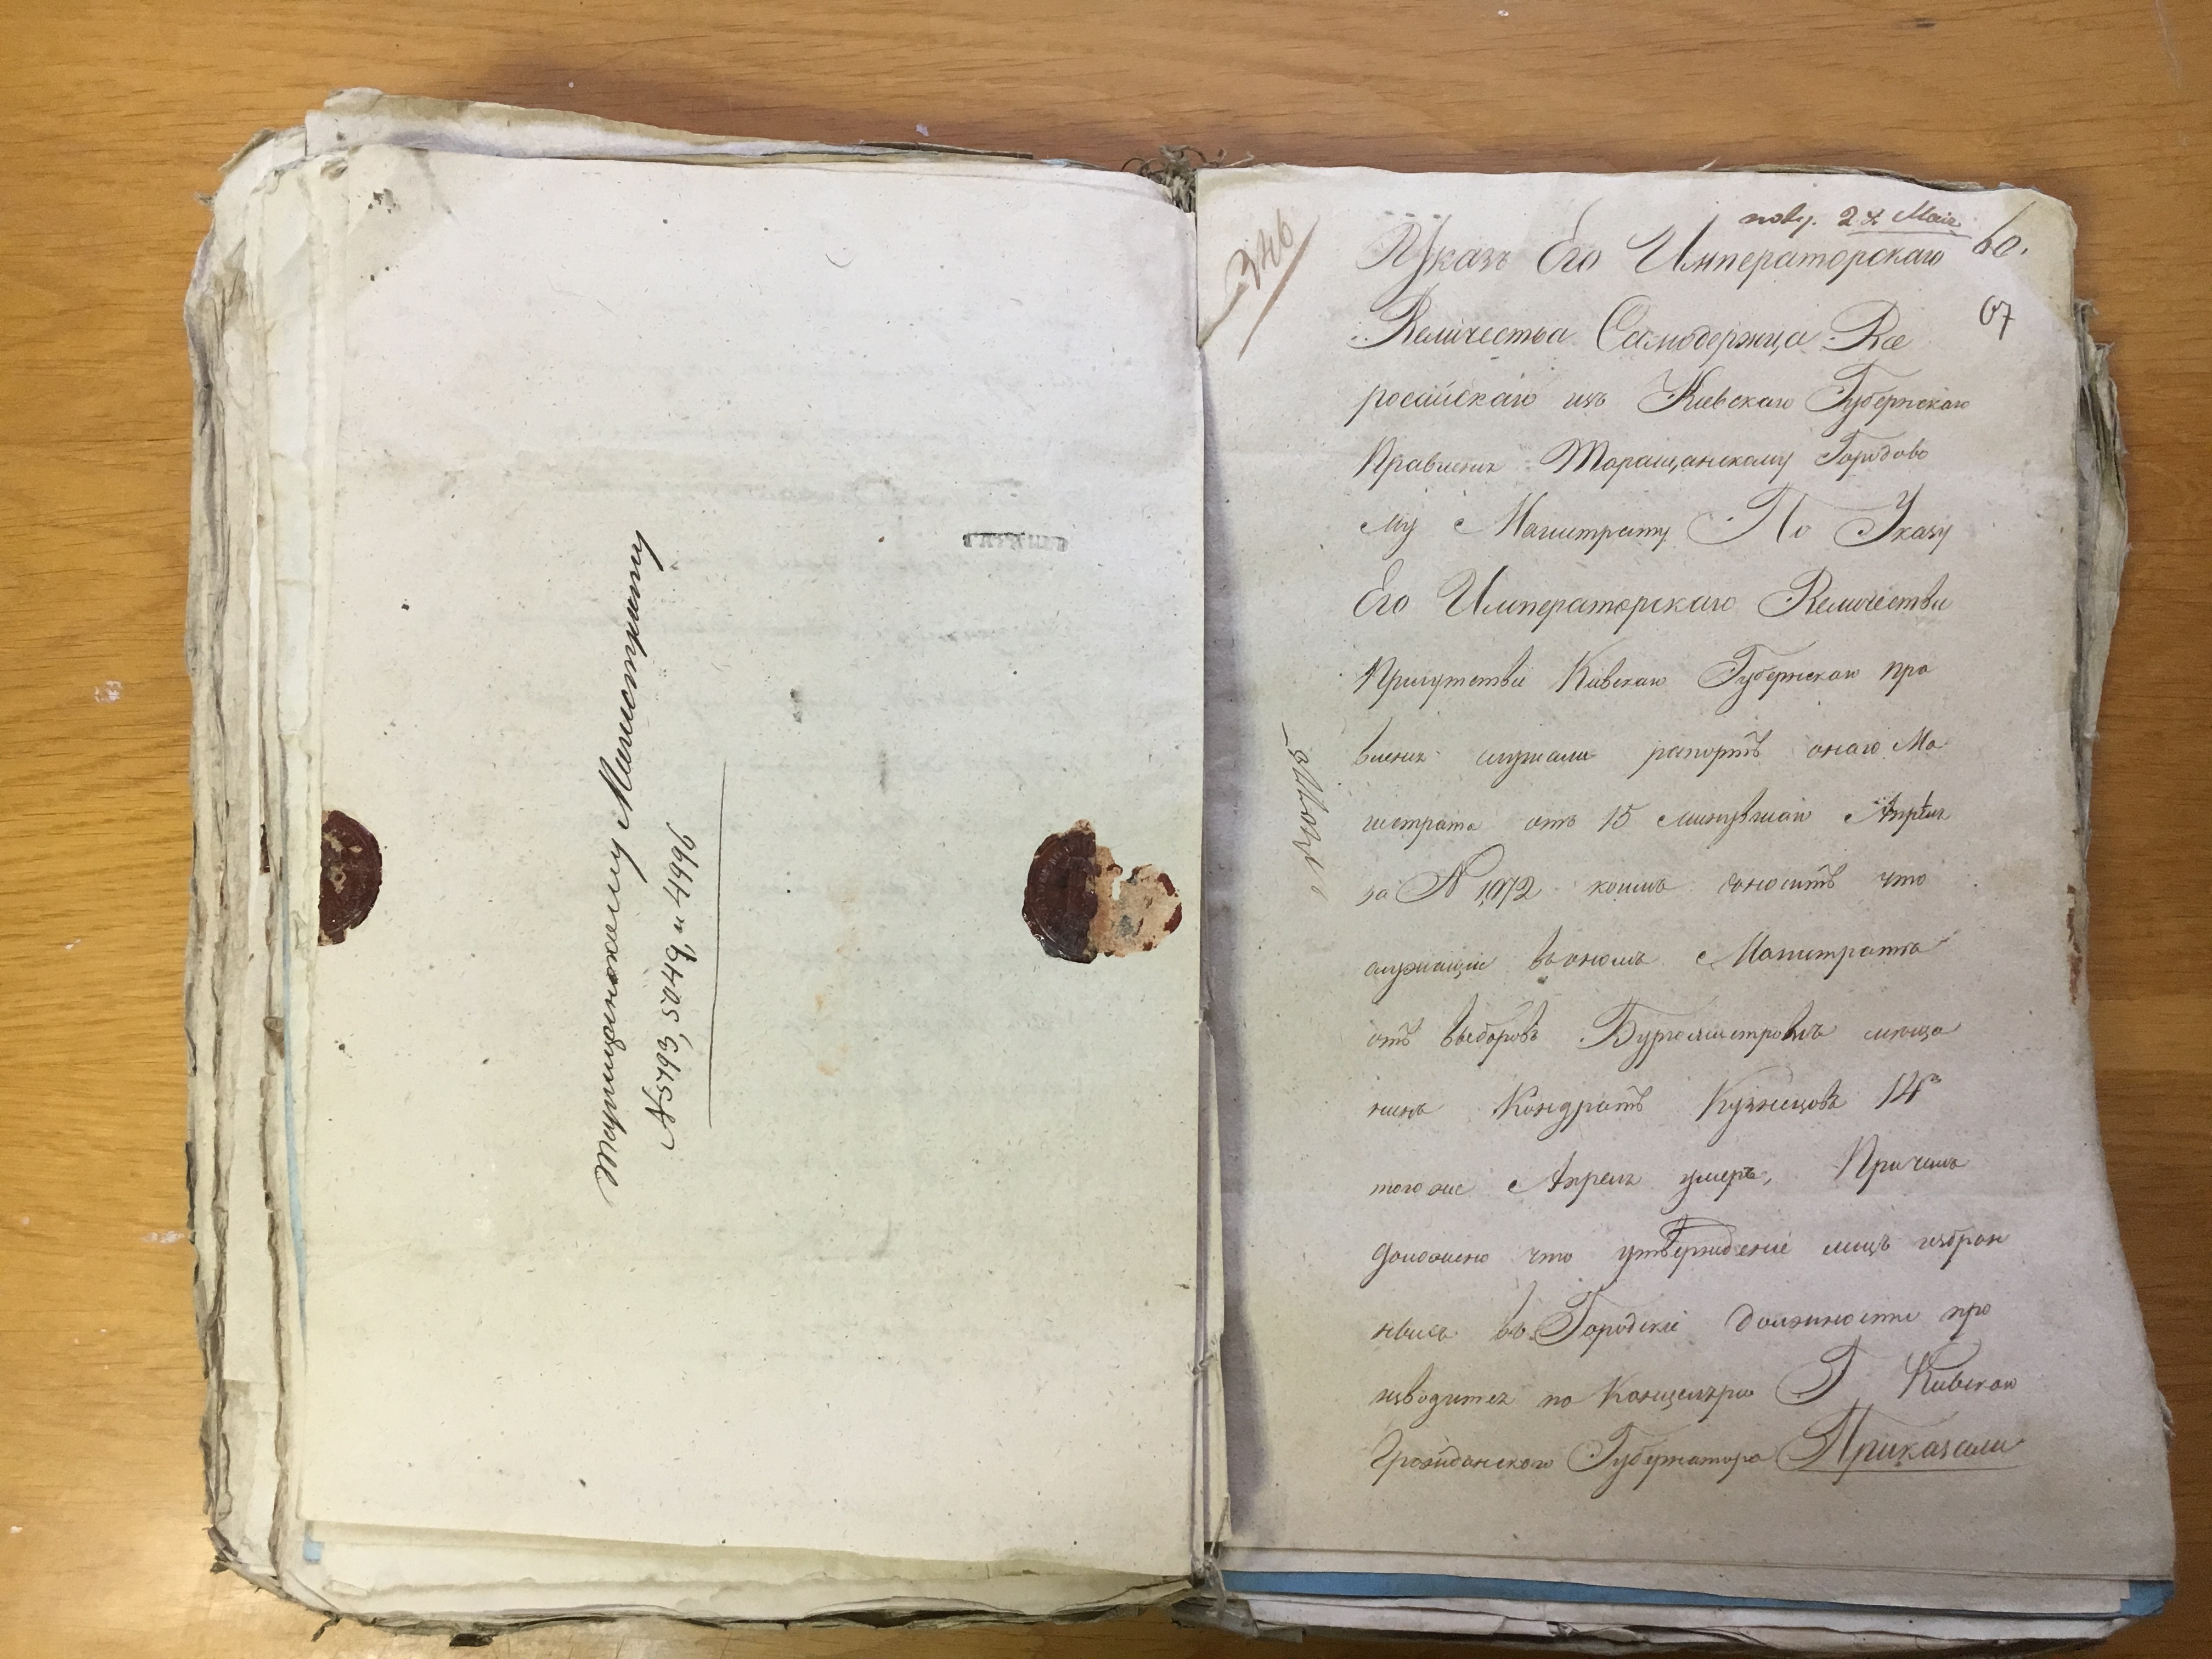 Таращанскому Магистрату
№ 5793, 5049, и 4996
346
полу. 24 Мая
60.
67
Указъ Его Императорскаго
Величества Самодержца Все
росийскаго изъ Киевскаго Губернскаго
Правления Таращанскому Городово
му Магистрату По Указу
Его Императорскаго Величества
Присутствіе Киевскаго Губернскаго пра
вления слушали рапортъ онаго Ма
гистрата отъ 15 минувшаго Апреля
за № 1072 коимъ доноситъ что
служащій въ ономъ Магистратѣ
отъ выборовъ Бургомистромъ меща
нинъ Кондратъ Кузнецовъ 14го
того же Апреля умеръ, Причемъ
доложено что утвержденіе лицъ избран
ныхъ въ Городскіе должности про
изводится по Канцеляріи Г Киевскаго
Гражданскаго Губернатора Приказали